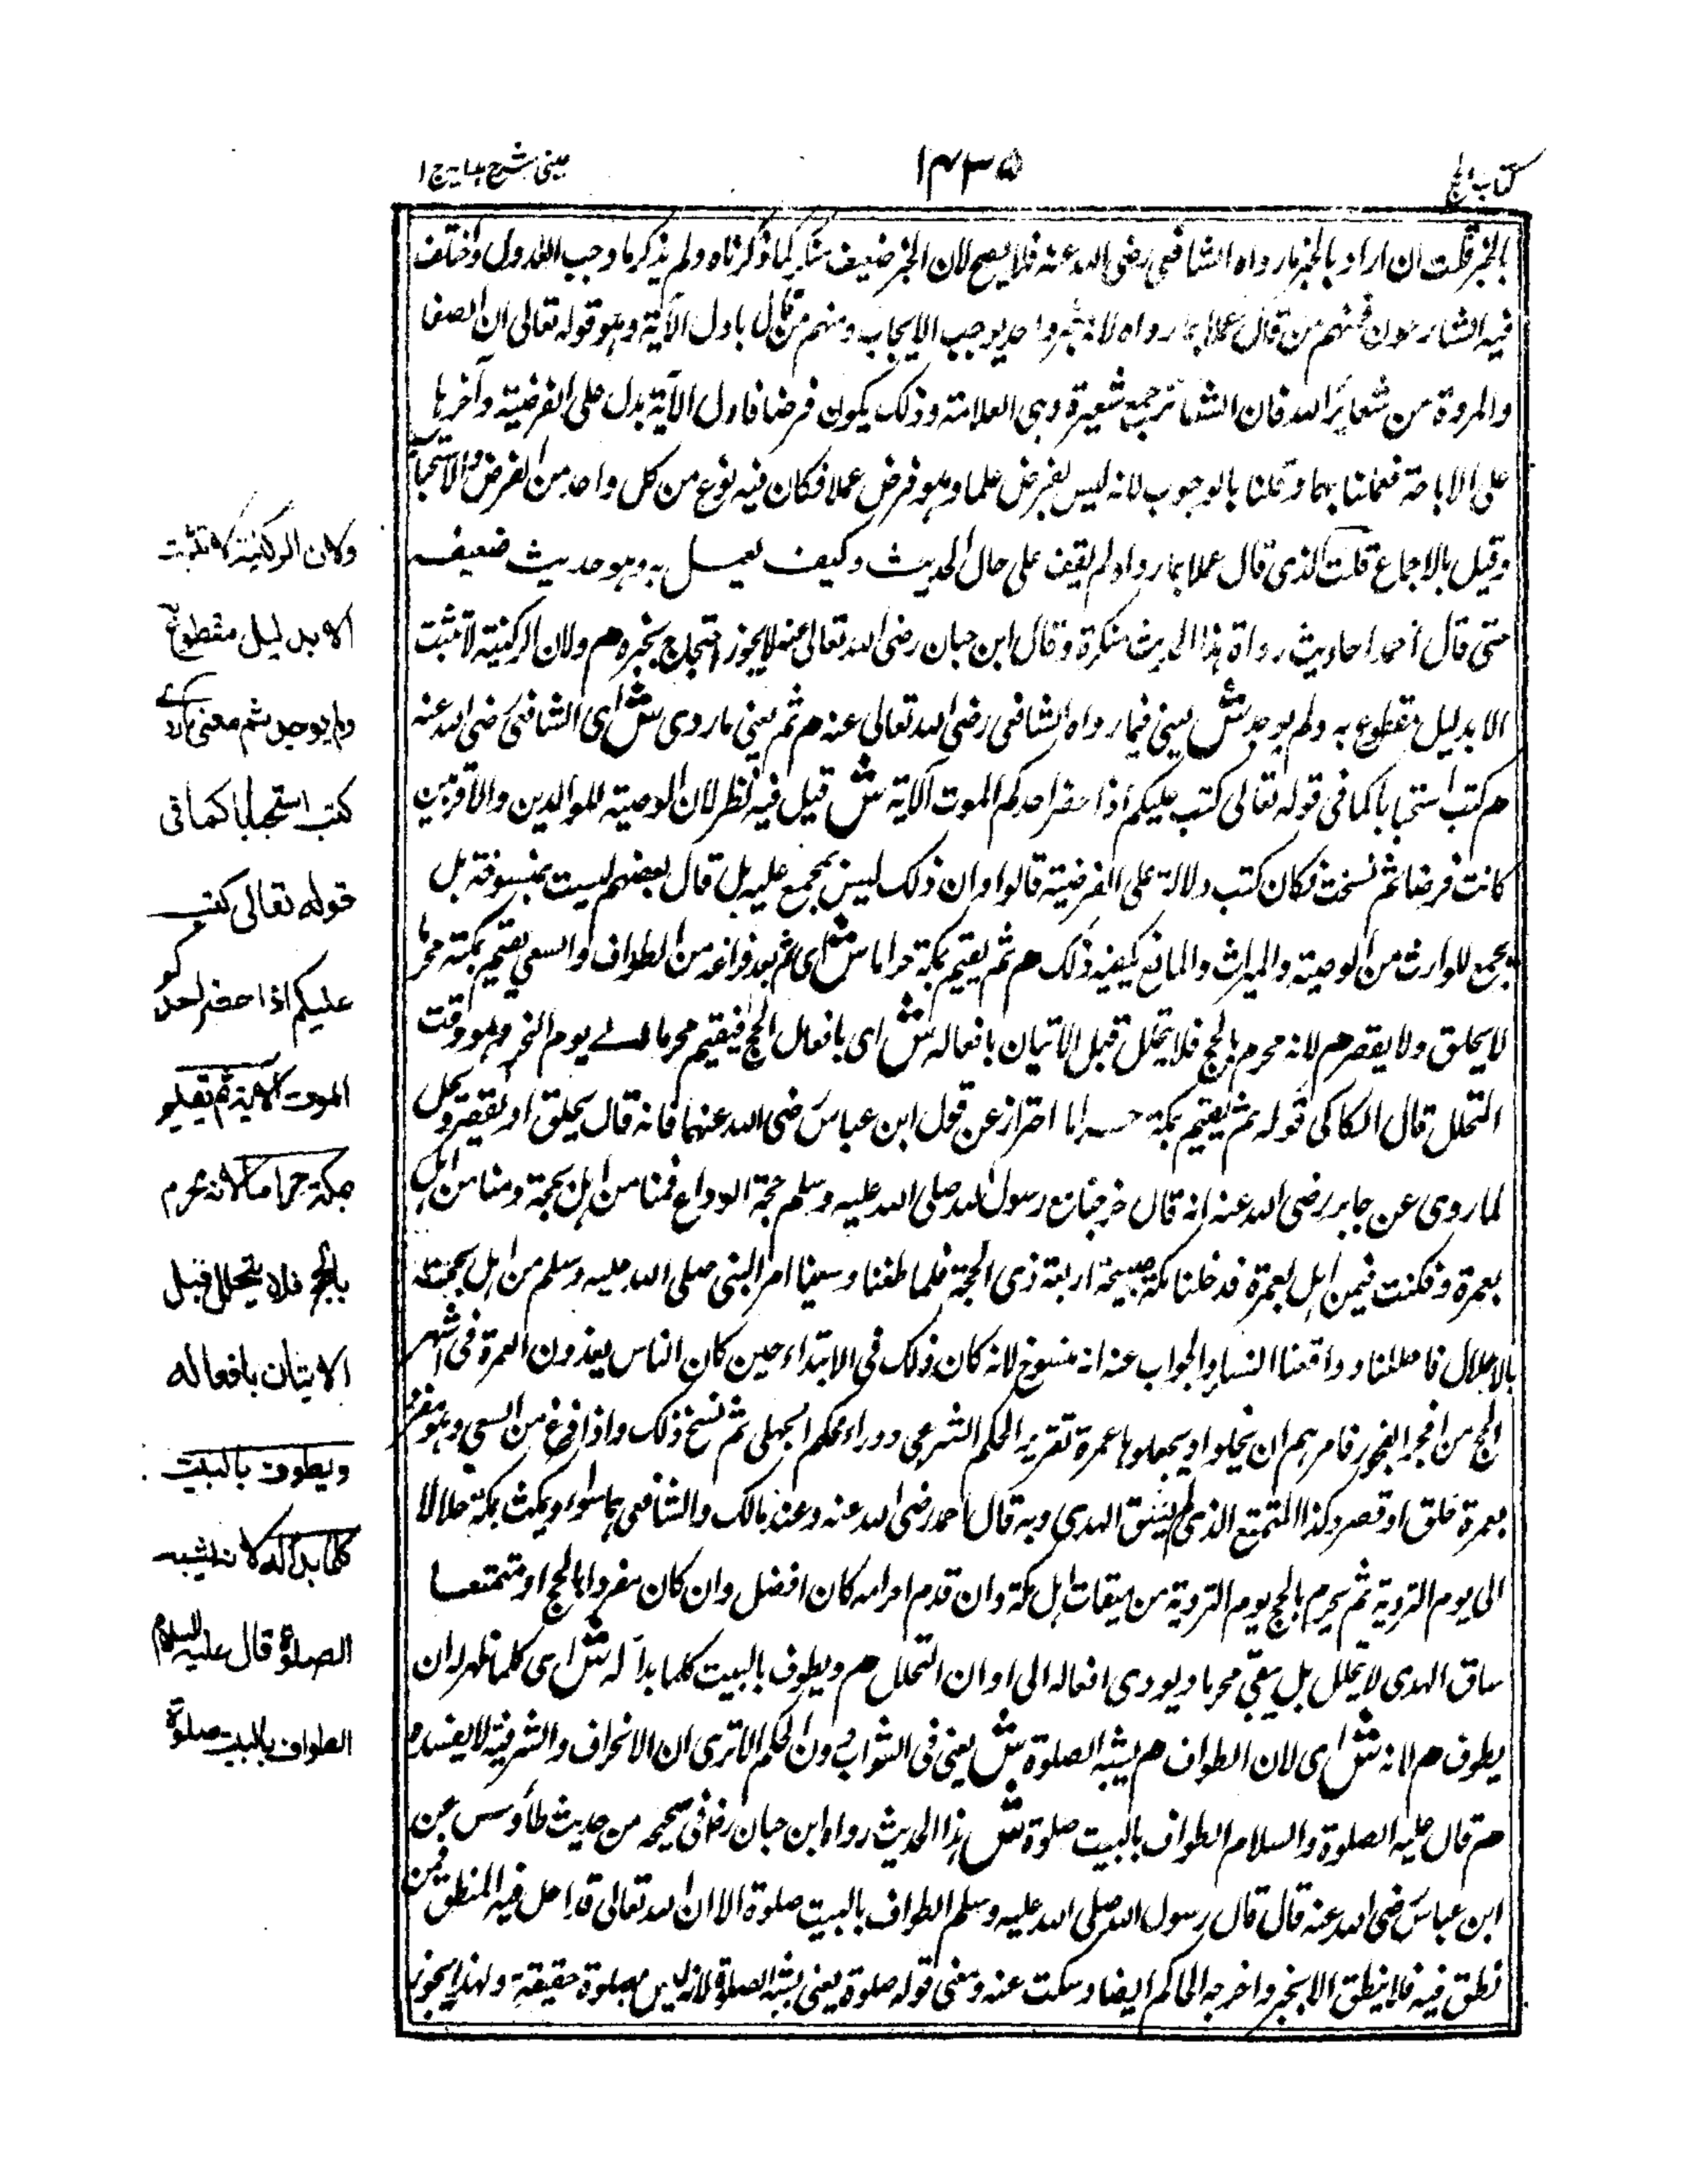 كتاب الحج
١٤٣٥
عينى شرح هدايه ج ١
بالخبر قلت ان اراد بالخبر ما رواه الشافعى رضى الله عنه فلا يصح لان الخبر ضعيف منكر كما ذكرناه ولم يذكر ما وجب العدول واختلف
فيه الشارحون فمنهم من قال عملا بما رواه لانه خبر واحد يوجب الايجاب ومنهم من قال باول الآية وهو قوله تعالى ان الصفا
والمروة من شعائر الله فان الشعائر جمع شعيرة وهى العلامة وذلك يكون فرضا فاول الآية يدل على الفرضية وآخرها
على الاباحة فعملنا بهما وقلنا بالوجوب لانه ليس بفرض علما وهو فرض عملا فكان فيه نوع من كل واحد من الفرض والاستحباب
وقيل بالاجماع قلت الذى قال عملا بما رواه لم يقف على حال الحديث وكيف يعمل به وهو حديث ضعيف
حتى قال احمد احاديث رواة هذا الحديث منكرة وقال ابن حبان رضى الله تعالى عنه لا يجوز احتجاج بخبره م ولان الركنية لا تثبت
الا بدليل مقطوع به ولم يوجد ش يعنى فيما رواه الشافعى رضى الله تعالى عنه م ثم معنى ما روى ش اى الشافعى رضى الله عنه
م كتب استحبابا كما فى قوله تعالى كتب عليكم اذا حضر احدكم الموت الآية ش قيل فيه نظر لان الوصية للوالدين والاقربين
كانت فرضا ثم نسخت فكان كتب دلالة على الفرضية قالوا وان ذلك ليس بمجمع عليه بل قال بعضهم ليست بمنسوخة بل
يجمع للوارث من الوصية والميراث والمانع يكفيه ذلك م ثم يقيم بمكة حراما ش اى ثم بعد فراغه من الطواف والسعى يقيم بمكة محرما
لا يحلق ولا يقصر م لانه محرم بالحج فلا يتحلل قبل الاتيان بافعاله ش اى بافعال الحج فيقيم محرما الى يوم النحر وهو وقت
التحلل قال الكاكى قوله ثم يقيم بمكة حراما احتراز عن قول ابن عباس رضى الله عنهما فانه قال يحلق او يقصر ويحل
لما روى عن جابر رضى الله عنه انه قال خرجنا مع رسول الله صلى الله عليه وسلم حجة الوداع فمنا من اهل بحجة ومنا من اهل
بعمرة وفكنت فيمن اهل بعمرة فدخلنا مكة صبيحة اربعة ذى الحجة فلما طفنا وسعينا امر النبى صلى الله عليه وسلم من اهل بحجة
بالاحلال فاحللنا وواقعنا النساء والجواب عنه انه منسوخ لانه كان ذلك فى الابتداء حين كان الناس يعدون العمرة فى اشهر
الحج من افجر الفجور فامرهم ان يحلوا ويجعلوها عمرة تقرير الحكم الشرعى وردا لحكم الجهلى ثم نسخ ذلك واذا فرغ من السعى وهو مفرد
بعمرة حلق او قصر وكذا المتمتع الذى لم يسق الهدى وبه قال احمد رضى الله عنه وعند مالك والشافعى هما سواء ويمكث بمكة حلالا
الى يوم التروية ثم يحرم بالحج يوم التروية من ميقات اهل مكة وان قدم احرامه كان افضل وان كان مفردا بالحج او متمتعا
ساق الهدى لا يتحلل بل يبقى محرما ويودى افعاله الى اوان التحلل م ويطوف بالبيت كلما بدا له ش اى كلما ظهر له ان
يطوف م لانه ش اى لان الطواف م يشبه الصلوة ش يعنى فى الثواب دون الحكم الا ترى ان الانحراف والشرقية لا يفسده
م قال عليه الصلوة والسلام الطواف بالبيت صلوة ش هذا الحديث رواه ابن حبان رض فى صحيحه من حديث طاؤس عن
ابن عباس رضى الله عنه قال قال رسول الله صلى الله عليه وسلم الطواف بالبيت صلوة الا ان الله تعالى قد احل فيه المنطق فمن
نطق فيه فلا ينطق الا بخير واخرجه الحاكم ايضا وسكت عنه ومعنى قوله صلوة يعنى يشبه الصلوة لانه ليس بصلوة حقيقة ولهذا يجوز
ولان الركنية لا تثبت
الا بدليل مقطوع به
ولم يوجد ثم معنى ما روى
كتب استحبابا كما فى
قوله تعالى كتب
عليكم اذا حضر احدكم
الموت الآية ثم يقيم
بمكة حراما لانه محرم
بالحج فلا يتحلل قبل
الاتيان بافعاله
ويطوف بالبيت
كلما بدا له لانه يشبه
الصلوة قال عليه السلام
الطواف بالبيت صلوة